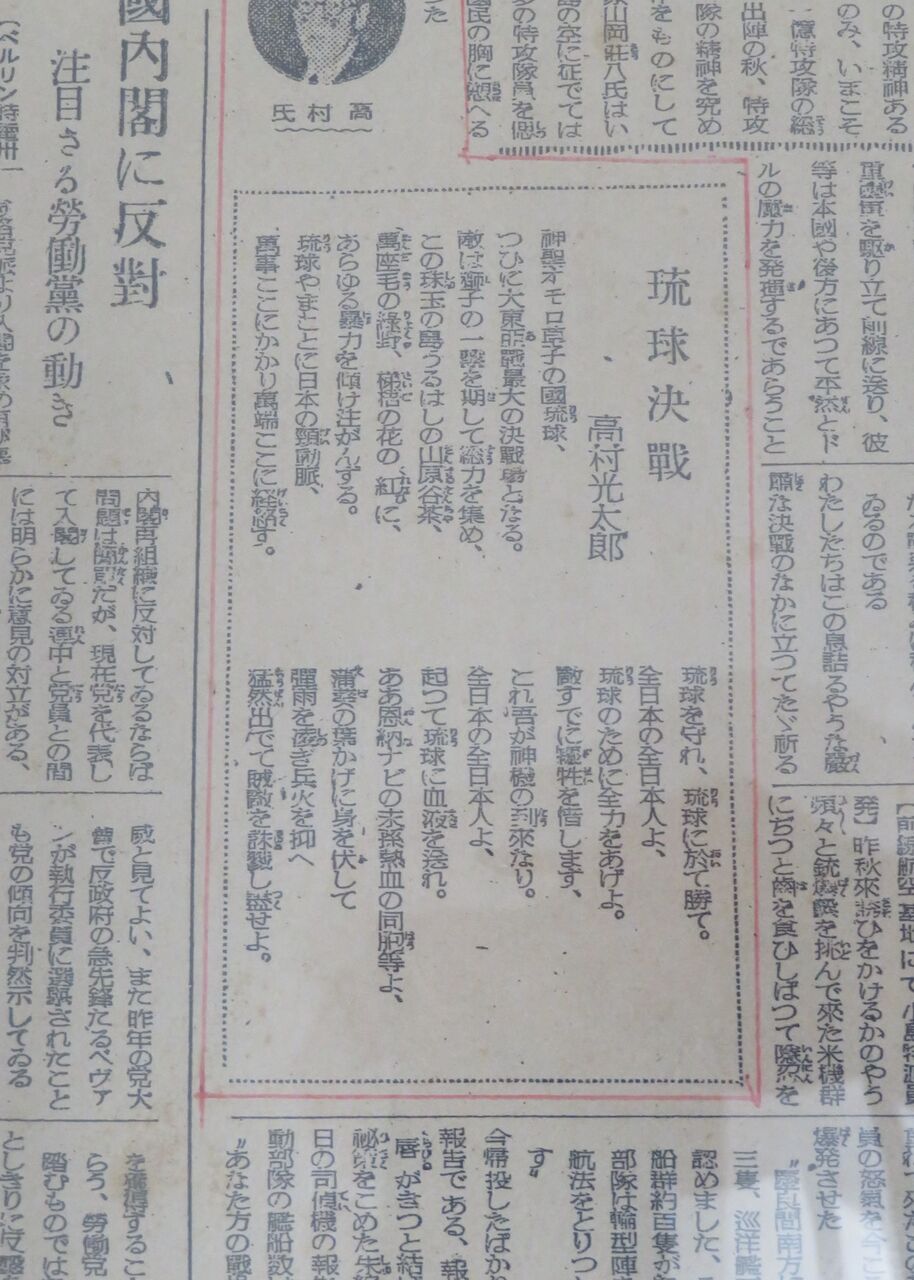 の特攻精神ある
のみ、いまこそ
一億特攻隊の總
出陣の秋、特攻
隊の精神を究め
をものにして
山岡莊八氏はい
の空に征でては
の特攻隊員を偲
國民の胸に愬へる
た
高村氏
國內閣に反對
注目さる勞働黨の動き
重壓軍を駆り立て前線に送り、彼
等は本國や後方にあつて平然とド
ルの魔力を発揮するであらうこと
琉球決戰
高村光太郎
神聖オモロ草子の國琉球、
つひに大東亞戰最大の決戰場となる。
敵は獅子の一撃を期して總力を集め、
この珠玉の島うるはしの山原谷茶、
萬座毛の緑野、梯梧の花の紅に、
あらゆる暴力を傾け注がんずる。
琉球やまことに日本の頸動脈、
萬事ここにかかり萬端ここに経絡す。
琉球を守れ、琉球に於て勝て。
全日本の全日本人よ、
琉球のために全力をあげよ。
敵すでに犠牲を惜します、
これ吾が神機の到來なり。
全日本の全日本人よ、
起つて琉球に血液を送れ。
ああ恩納ナビの末孫熱血の同胞等よ、
蒲葵の葉かげに身を伏して
彈雨を凌ぎ兵火を抑へ
猛然出でて賊敵を誅戮し盡せよ。
ゐるのである
わたしたちはこの息詰るやうな嚴
肅な決戰のなかに立つてたゞ祈る
發】昨秋來誘ひをかけるかのやう
頻々と銃爆撃を挑んで來た米機群
にぢつと齒を食ひしばつて隱忍を
內閣再組織に反対してゐるならば
問題は簡單だが、現在党を代表し
て入閣してゐる連中と党員との間
には明らかに意見の対立がある、
威と見てよい、また昨年の党大
會で反政府の急先鋒たるベヴァ
ンが執行委員に選擧されたこと
も党の傾向を判然示してゐる
員の怒氣を今こ
爆発させた
〃慶良間南方
三隻、巡洋艦
認めました、
船群約百隻が
部隊は輪型陣
航法をとりつ
す〃
今帰投したばかり
報告である、報
唇がきつと結
祕境をこめた
日の司偵機の報
動部隊の艦船数
〃あなた方の戰
を獲得するこ
らう、勞働党
踏むものでは
としきりに反擊